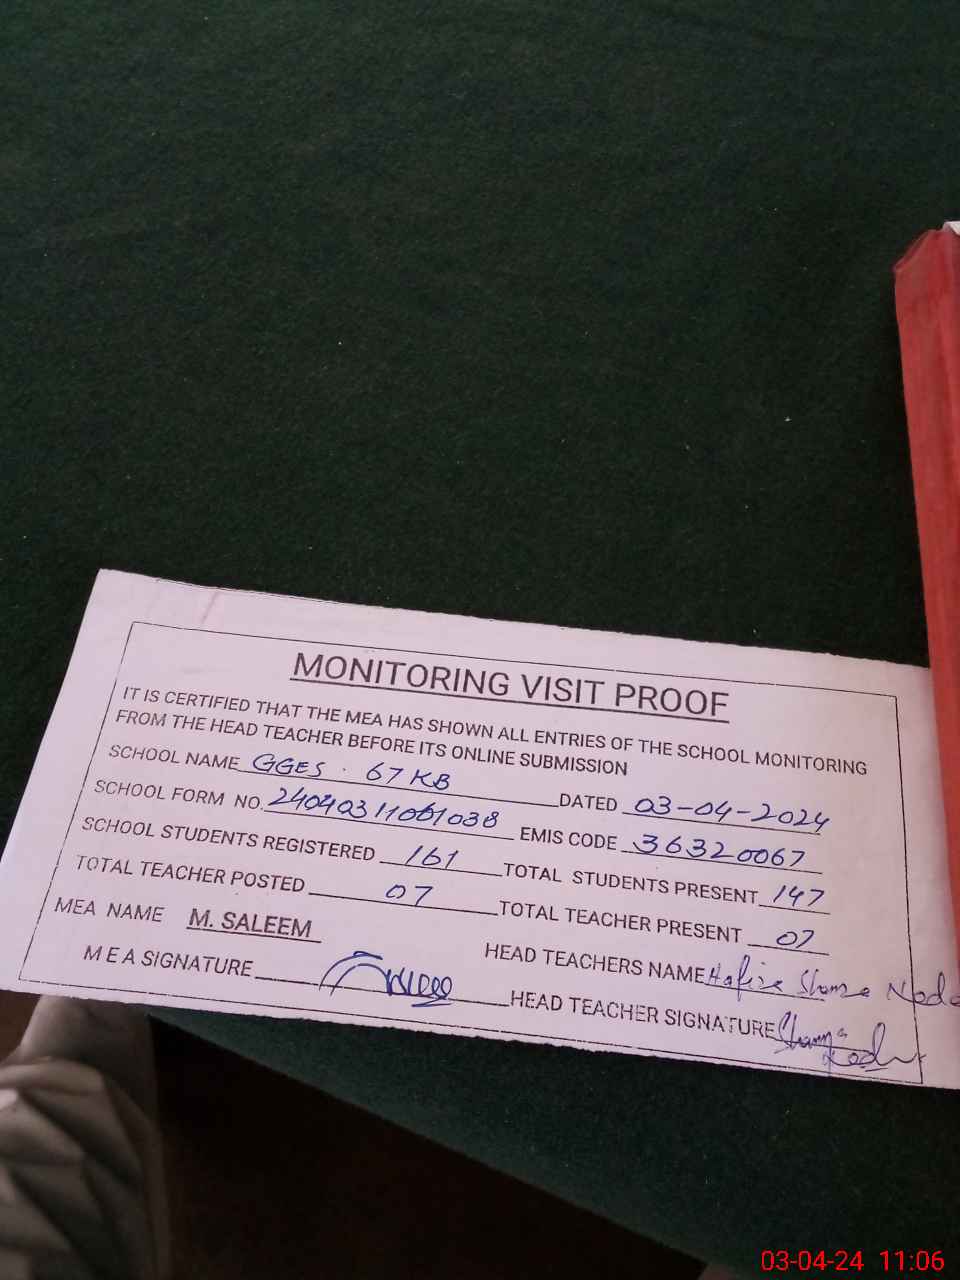 MONITORING VISIT PROOF
IT IS CERTIFIED THAT THE MEA HAS SHOWN ALL ENTRIES OF THE SCHOOL MONITORING
FROM THE HEAD TEACHER BEFORE ITS ONLINE SUBMISSION
SCHOOL NAME GGES. 67 KB DATED 03-04-2024
SCHOOL FORM NO. 24040311061038 EMIS CODE 36320067
SCHOOL STUDENTS REGISTERED 161 TOTAL STUDENTS PRESENT 147
TOTAL TEACHER POSTED 07 TOTAL TEACHER PRESENT 07
MEA NAME M. SALEEM HEAD TEACHERS NAME Hafiza
MEA SIGNATURE HEAD TEACHER SIGNATURE
03-04-24 11:06